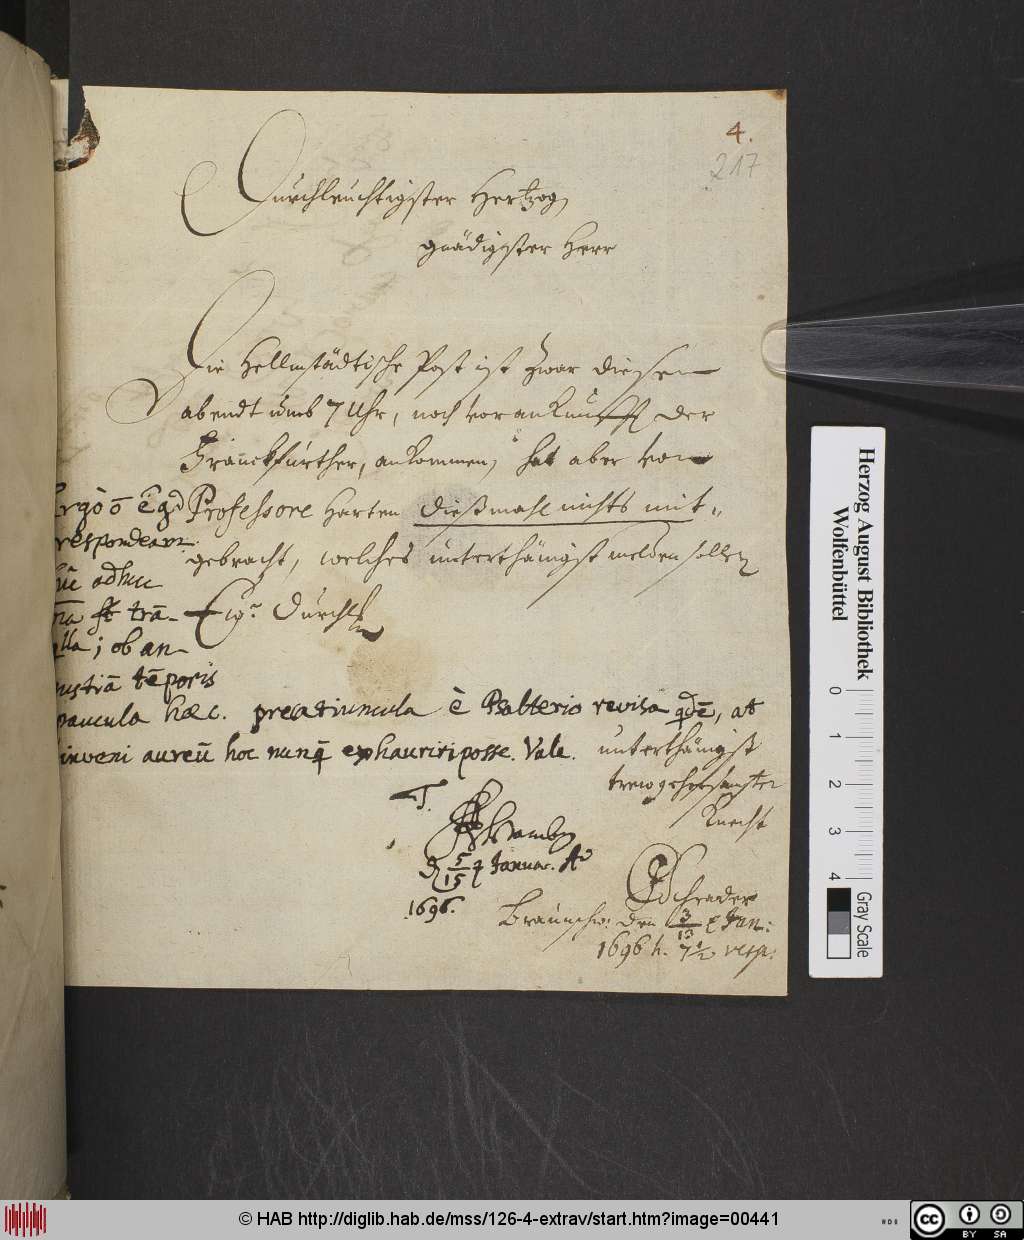 4.
217
Durchleuchtigster Hertzog,
gnädigster Herr
Die Helmstädtische Post ist zwar diesen
abendt umb 7 Uhr, noch vor ankunfft der
Franckfurther, ankommen, hat aber von
Professore Harten dießmahl nichts mit-
gebracht, welches unterthänigst melden sollen
Ew. Durchl.
Ergo
respondeam
adhuc
trā-
; ob an-
gustiā tēporis
paucula haec. precatiuncula è Psalterio revisa qdē, at
inveni aureū hoc nunq exhauriri posse. Vale.
unterthänigst
trewgehorsambster
Knecht
T.
d 5/15 Januar. Ao
1696.
CSchrader
Braunschw. den 3/13 Jan:
1696 h. 7 1/2 vesp:
Herzog August Bibliothek
Wolfenbüttel
0 1 2 3 4
Gray Scale
© HAB http://diglib.hab.de/mss/126-4-extrav/start.htm?image=00441
cc
BY SA